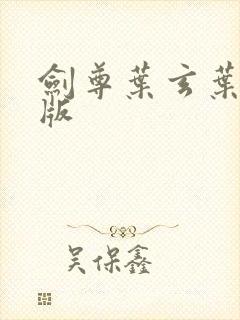 劍尊葉玄葉
版
吴保鑫